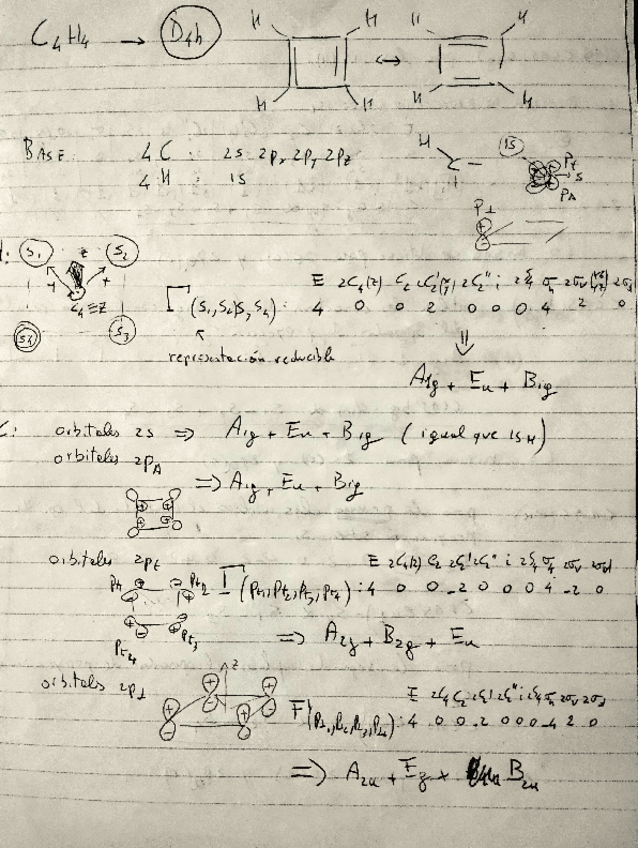 C4H4 → D4h
H H H H
↔
H H H H
BASE: 4C: 2s 2px 2py 2pz
4H: 1s
H C 1s Pt s PA
P⊥ + -
H: S1 z S2
C4 ≡ Z
S4 S3
Γ(S1, S2, S3, S4): E 2C4(z) C2 2C2' 2C2'' i 2S4 σh 2σv 2σd
4 0 0 2 0 0 0 4 2 0
representación reducible
⇓
A1g + Eu + B1g
C: orbitales 2s ⇒ A1g + Eu + B1g (igual que 1sH)
orbitales 2pA
⇒ A1g + Eu + B1g
orbitales 2pt E 2C4(z) C2 2C2' 2C2'' i 2S4 σh 2σv 2σd
Pt1 Pt2 Γ(Pt1, Pt2, Pt3, Pt4): 4 0 0 -2 0 0 0 4 -2 0
Pt4 Pt3 ⇒ A2g + B2g + Eu
orbitales 2p⊥ z E 2C4 C2 2C2' 2C2'' i 2S4 σh 2σv 2σd
Γ(P⊥1, P⊥2, P⊥3, P⊥4): 4 0 0 -2 0 0 0 -4 2 0
⇒ A2u + Eg + B2u